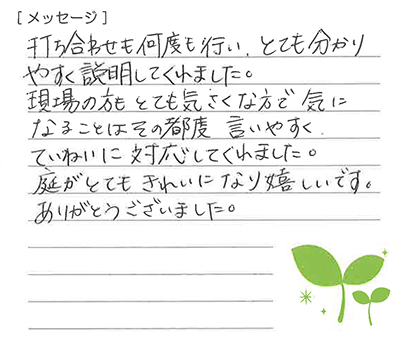 [メッセージ]
打ち合わせも何度も行い、とても分かり
やすく説明してくれました。
現場の方もとても気さくな方で気に
なることはその都度 言いやすく、
ていねいに対応してくれました。
庭がとてもきれいになり嬉しいです。
ありがとうございました。